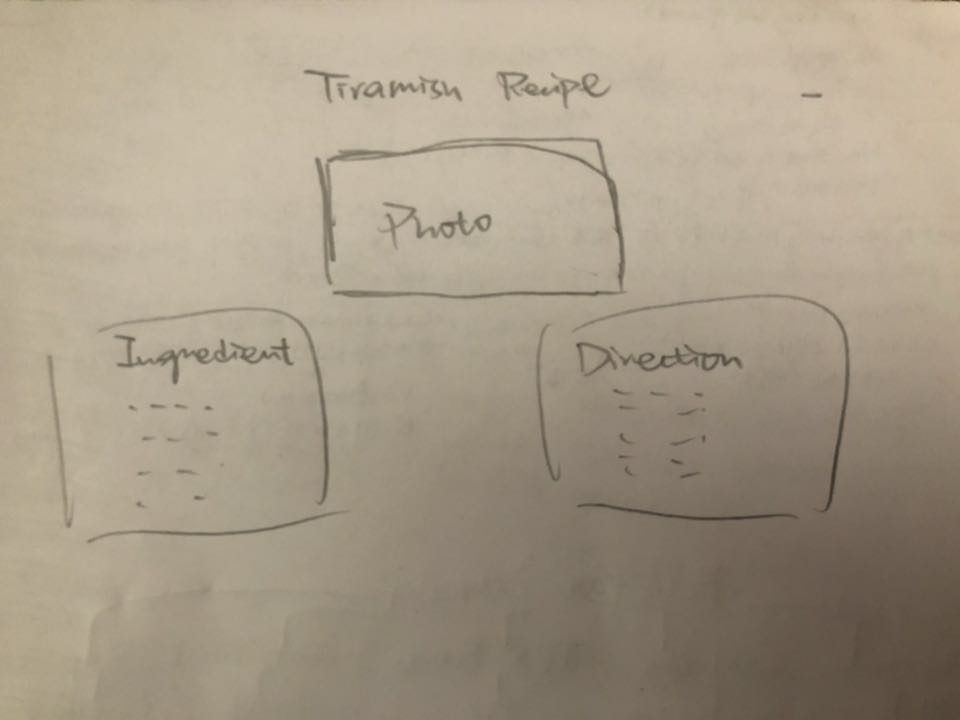 Tiramisu Recipe
Photo
Ingredient
Direction